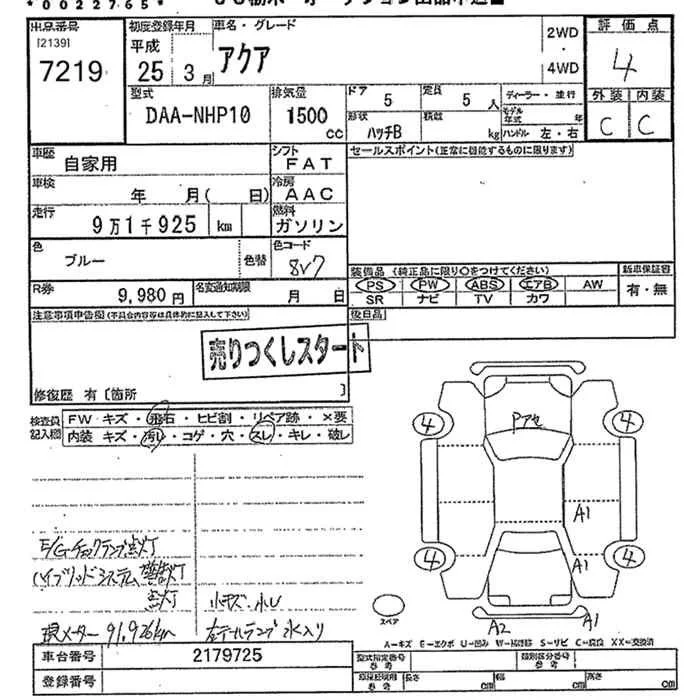 *0022765*
出品番号
[2139]
7219
初度登録年月
平成
25 3月
車名・グレード
アクア
2WD
・
4WD
評価点
4
型式
DAA-NHP10
排気量
1500
cc
ドア 5
定員 5 人
形状 ハッチB
積載 kg
ディーラー・並行
モデル年式 年
ハンドル 左・右
外装 内装
C C
車歴 自家用
シフト
FAT
セールスポイント(正常に機能するものに限ります)
車検 年 月( 日)
冷房
AAC
走行 9万1千925 km
燃料
ガソリン
色 ブルー 色替
色コード
8V7
装備品 (純正品に限り○をつけてください)
新車保証書
PS PW ABS エアB AW
有・無
SR ナビ TV カワ
R券 9,980円
名変通知期限 月 日
注意事項申告欄(不具合内容等は具体的に記入して下さい)
後日品
売りつくしスタート
修復歴 有〔箇所 〕
検査員
記入欄
FW キズ・飛石・ヒビ割・リペア跡・×要
内装 キズ・汚レ・コゲ・穴・スレ・キレ・破レ
4 4
Pアセ
A1
A1
4 4
A2 A1
スペア
E/Gチェックランプ点灯
ハイブリッドシステム警告灯
点灯 小キズ・小U
現メーター91,926km 左テールランプ水入り
A=キズ E=エクボ U=凹み W=補修跡 S=サビ C=腐食 XX=交換済
車台番号 2179725
登録番号
型式指定番号
参考
類別区分番号
参考
長さ cm 幅 cm 高さ cm